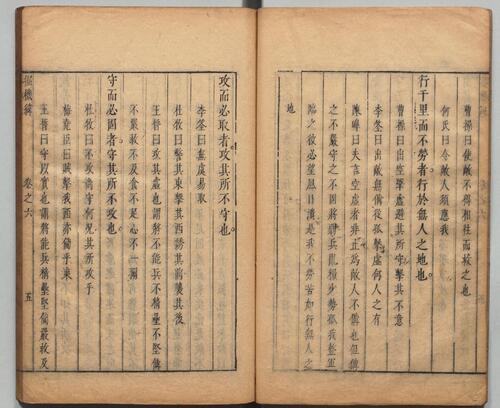 曹操曰使敵不得相往而救之也
何氏曰令敵人須應我
行千里而不勞者行於無人之地也
曹操曰出空擊虛避其所守擊其不意
李筌曰出敵無備從孤擊虛何人之有
陳皥曰夫言空虛者非止為敵人不備也但備
之不嚴守之不固將弱兵亂糧少勢孤我整軍
臨之彼必望風自潰是我不勞苦如行無人之
地
攻而必取者攻其所不守也
李筌曰無虞易取
杜牧曰警其東擊其西誘其前襲其後
王晳曰攻其虛也謂將不能兵不精壘不堅備
不嚴救不及食不足心不一爾
守而必固者守其所不攻也
杜牧曰不攻尚守何況其所攻乎
梅堯臣曰賊擊我西亦備乎東
王晳曰守以實也謂將能兵精壘堅備嚴救及
卷之六
五